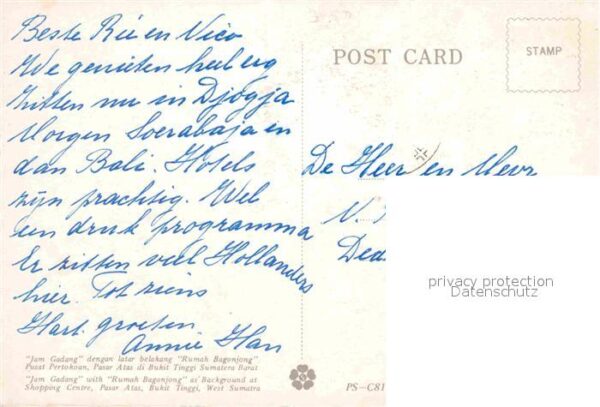 Beste Rie en Nico
We genieten heel erg
zitten nu in Djogja
Morgen Soerabaja en
dan Bali. Hotels
zijn prachtig. Wel
een druk programma
Er zitten veel Hollanders
hier. Tot ziens
Hart. groeten
Annie Han
"Jam Gadang" dengan latar belakang "Rumah Bagonjong"
Pusat Pertokoan, Pasar Atas di Bukit Tinggi Sumatera Barat
"Jam Gadang" with "Rumah Bagonjong" as Background at
Shopping Centre, Pasar Atas, Bukit Tinggi, West Sumatra
POST CARD
STAMP
De Heer en Mevr
Ded
privacy protection
Datenschutz
PS-C81